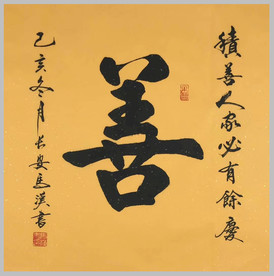 積善人家必有餘慶
善
己亥冬月長安馬漢書